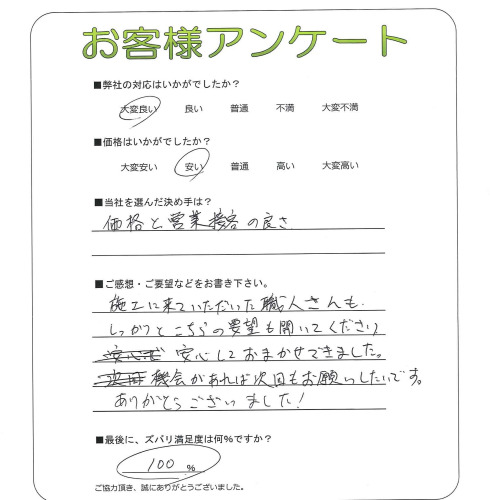 お客様アンケート
■弊社の対応はいかがでしたか?
大変良い 良い 普通 不満 大変不満
■価格はいかがでしたか?
大変安い 安い 普通 高い 大変高い
■当社を選んだ決め手は?
価格と営業接客の良さ
■ご感想・ご要望などをお書き下さい。
施工に来ていただいた職人さんも、
しっかりとこちらの要望も聞いてください
安心して おまかせできました。
機会があれば次回もお願いしたいです。
ありがとうございました!
■最後に、ズバリ満足度は何%ですか?
100 %
ご協力頂き、誠にありがとうございました。